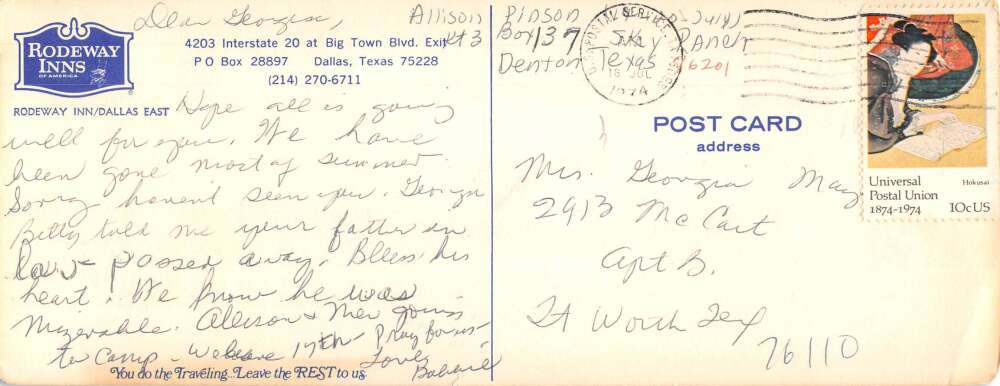 Dear Georgia,
RODEWAY
INNS
OF AMERICA
4203 Interstate 20 at Big Town Blvd. Exit
P O Box 28897 Dallas, Texas 75228
(214) 270-6711
RODEWAY INN/DALLAS EAST
Hope all is going
well for you. We have
been gone most of summer.
Sorry haven't seen you. Georgia
Betty told me your father in
law passed away. Bless his
heart! We know he was
Mizerable. Allison &
to Camp - We leave 17th - Pray for us -
Love,
You do the Traveling...Leave the REST to us.
Allison Pinson
Rt 3 Box 137 Sky Ranch
Denton Texas 76201
U.S. POSTAL SERVICE
18 JUL
1974
POST CARD
address
Mrs. Georgia May
2913 McCart
Apt B.
Ft Worth Tex
76110
Universal
Postal Union
1874-1974
Hokusai
10c US